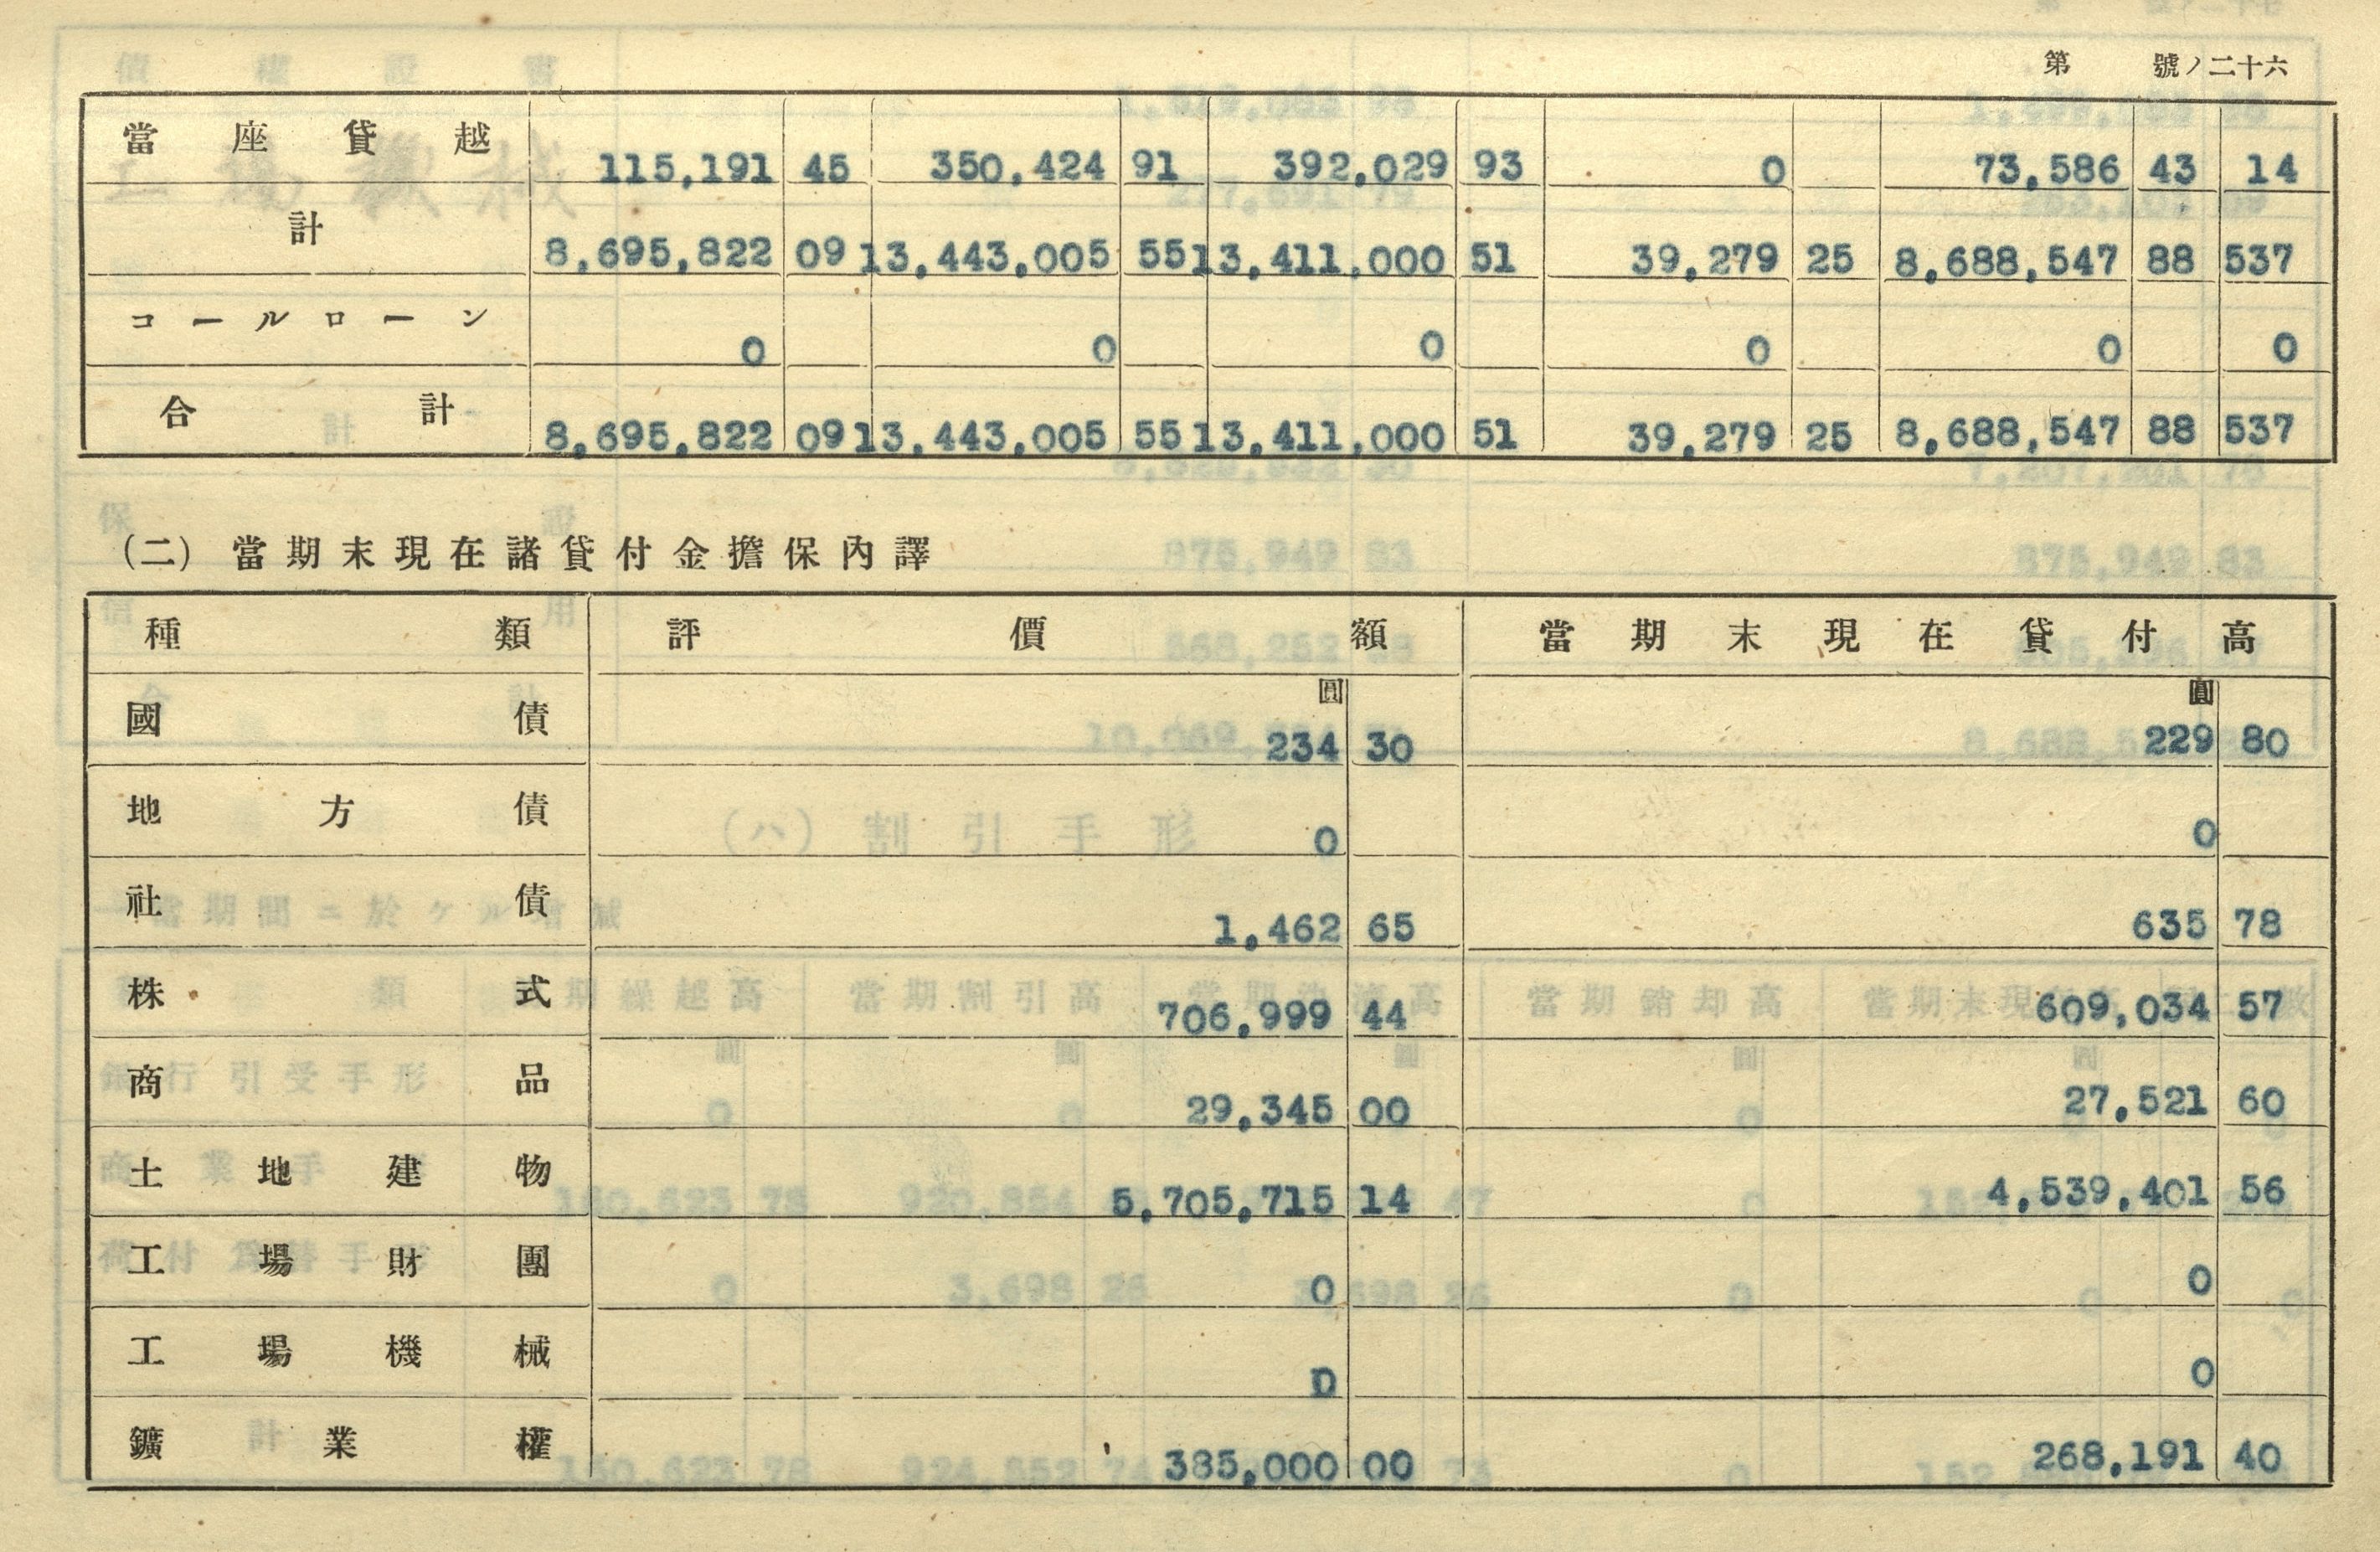 第 號ノ二十六
當座貸越 115,191 45 350,424 91 392,029 93 0 73,586 43 14
計 8,695,822 09 13,443,005 55 13,411,000 51 39,279 25 8,688,547 88 537
コールローン 0 0 0 0 0 0
合計 8,695,822 09 13,443,005 55 13,411,000 51 39,279 25 8,688,547 88 537
(二) 當期末現在諸貸付金擔保內譯
種類 評價額 當期末現在貸付高
圓 圓
國債 234 30 229 80
地方債 0 0
社債 1,462 65 635 78
株式 706,999 44 609,034 57
商品 29,345 00 27,521 60
土地建物 5,705,715 14 4,539,401 56
工場財團 0 0
工場機械 0 0
鑛業權 385,000 00 268,191 40